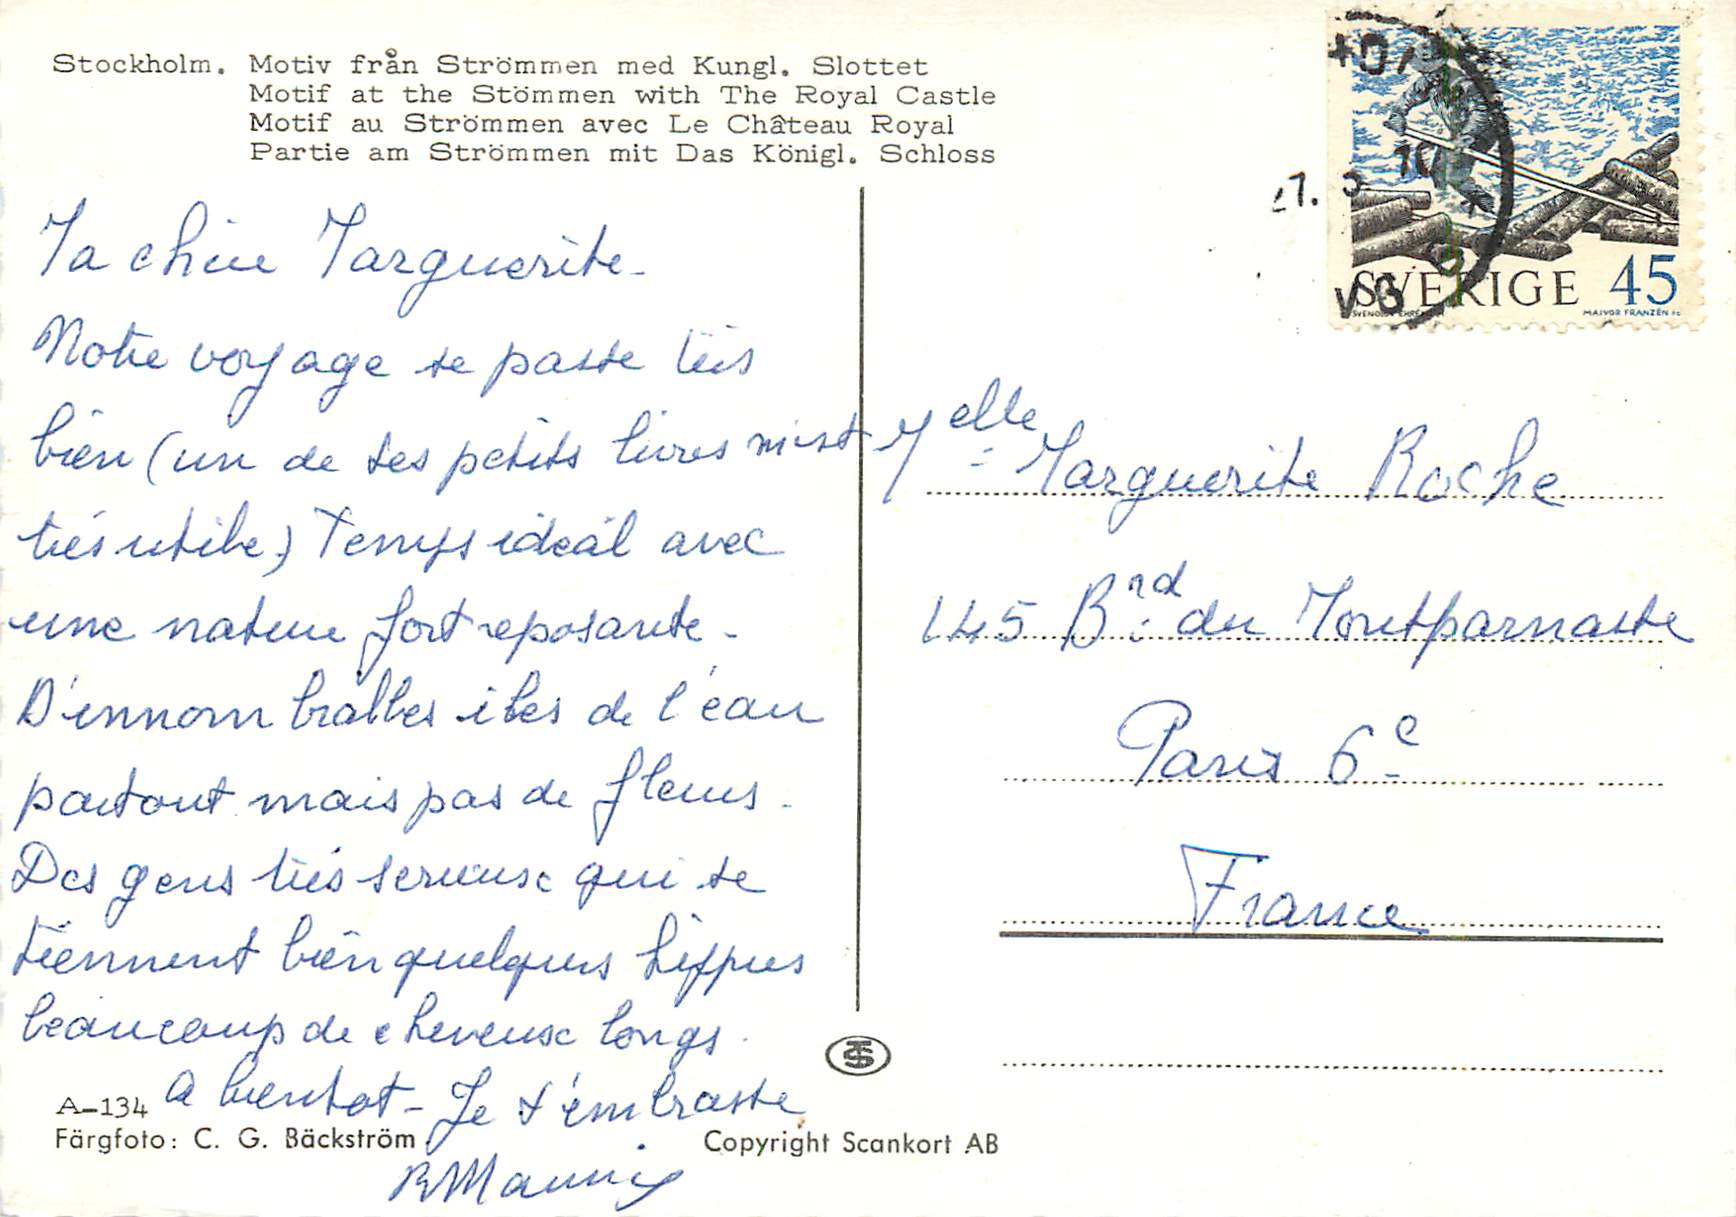 Stockholm. Motiv från Strömmen med Kungl. Slottet
Motif at the Stömmen with The Royal Castle
Motif au Strömmen avec Le Château Royal
Partie am Strömmen mit Das Königl. Schloss
Ma chère Marguerite -
Notre voyage se passe très
bien (un de tes petits livres m'est
très utile) Temps idéal avec
une nature fort reposante -
D'innombrables îles de l'eau
partout mais pas de fleurs -
Des gens très serieux qui se
tiennent bien quelques hippies
beaucoup de cheveux longs.
A bientot - Je t'embrasse
A-134
Färgfoto: C. G. Bäckström
Copyright Scankort AB
SVERIGE 45
MAJVOR FRANZÉN sc
Melle Marguerite Roche
145 Brd du Montparnasse
Paris 6e
France